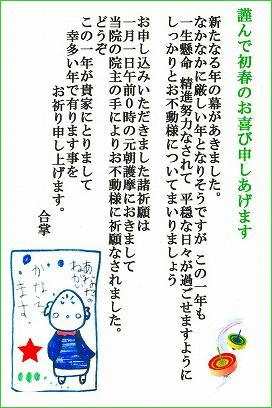 謹んで初春のお喜び申しあげます
新たなる年の幕があきました。
なかなかに厳しい年となりそうですが この一年も
一生懸命 精進努力なされて 平穏な日々が過ごせますように
しっかりとお不動様についてまいりましょう
お申し込みいただきました諸祈願は
一月一日午前0時の元朝護摩におきまして
当院の院主の手によりお不動様に祈願なされました。
どうぞ
この一年が貴家にとりまして
幸多い年で有ります事を
お祈り申し上げます。
合掌
あなたの
ねがい
かなえ
ます。